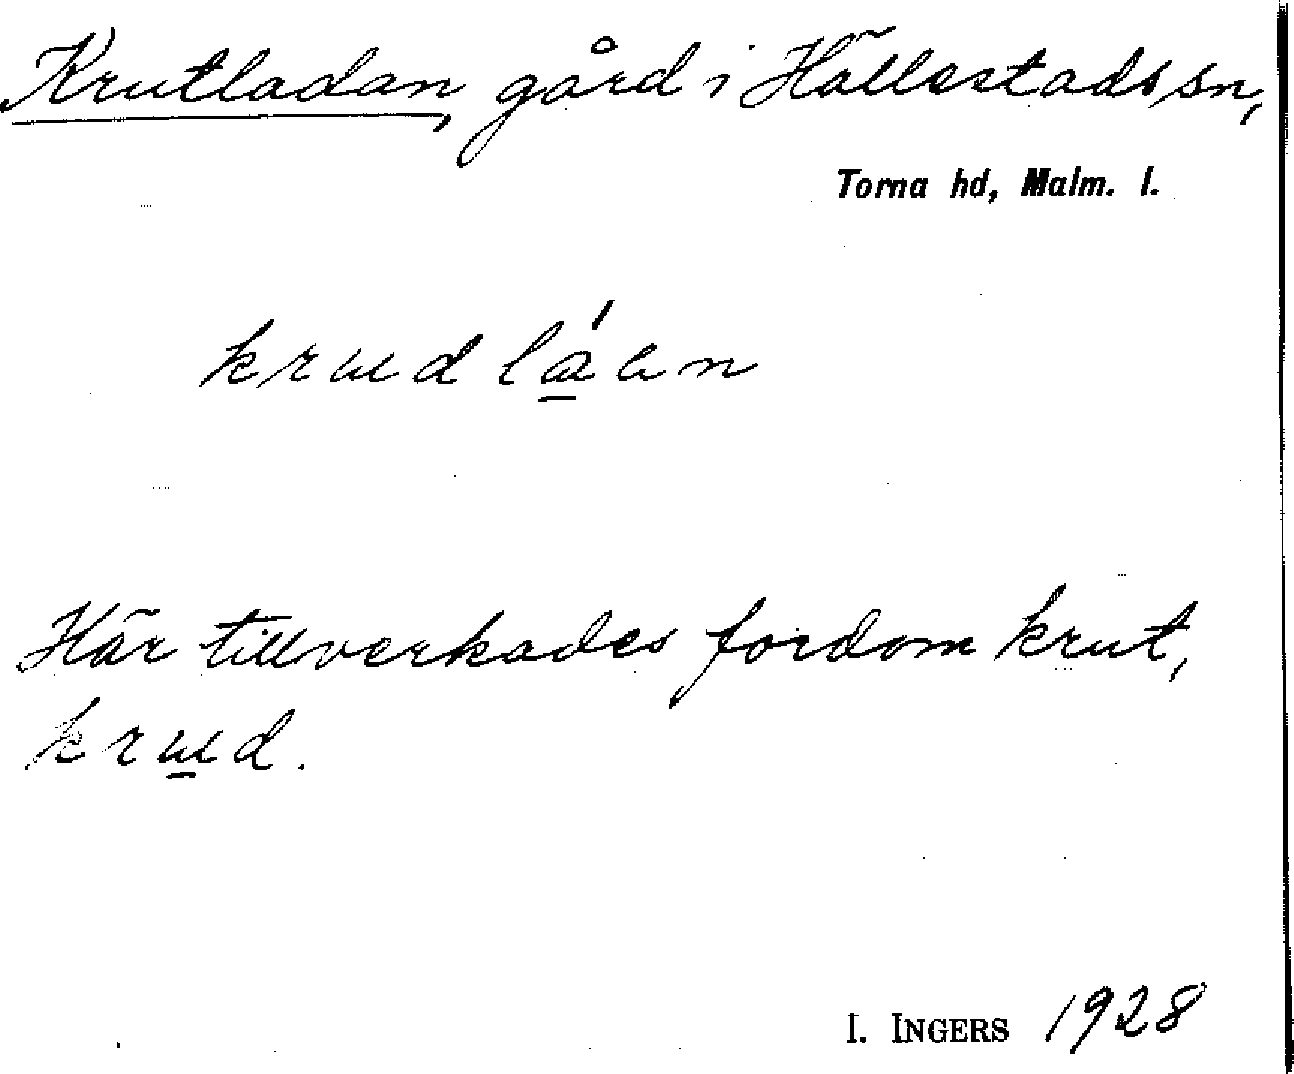 Krutladan, gård i Hällestads sn,
Torna hd, Malm. l.
krudláen
Här tillverkades fordom krut,
krud.
I. INGERS 1928